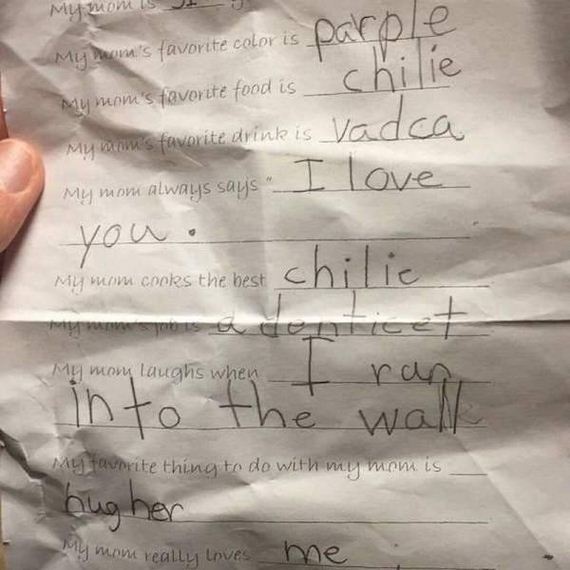 My mom is
My mom's favorite color is parple
My mom's favorite food is chilie
My mom's favorite drink is vadca
My mom always says " I love
you.
My mom cooks the best chilie
My mom's job is a denticet
My mom laughs when I ran
into the wall
My favorite thing to do with my mom is
hug her
My mom really loves me